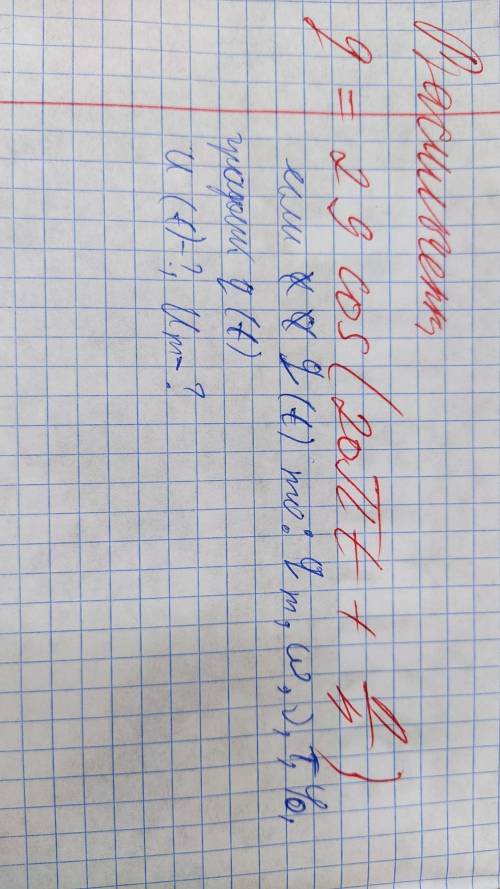 Прочитать
q = 29 cos (20πt + π/4)
если q(t) то: qm, ω, ν, T, φ0,
график q(t)
u(t)-?, Um-?